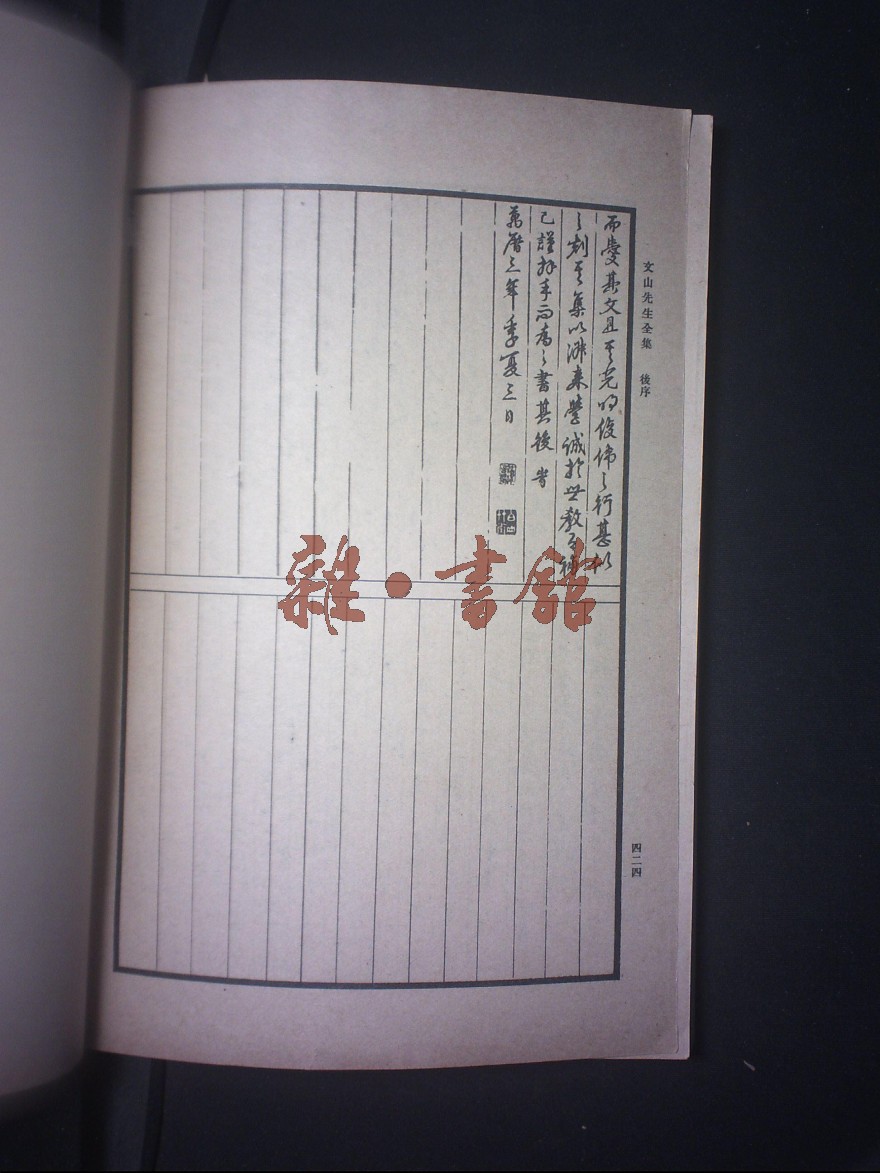 文山先生全集 後序
而愛其文且其光明俊偉之行甚
之刻其集以淑來學誠於世教有補
已謹拜手而為之書其後 旹
萬曆三年季夏三日
四二四
雜·書館